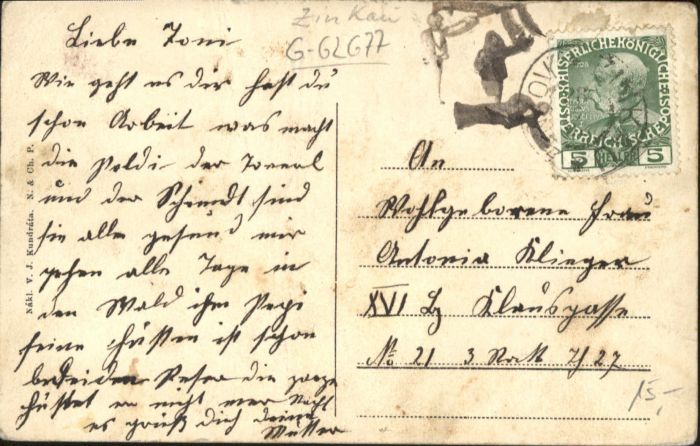 Zinkau
G-62677
Liebe Toni
Wie geht es dir hast du
schon Arbeit was macht
die Poldi der Tonerl
und der Schmidt sind
sie alle gesund wir
gehen alle Tage in
den Wald ihm Pepi
seine Husten ist schon
die ganze
hustet er nicht mer
es grüß dich deine
Mutter
Nákl. V. J. Kundráta. N. & Ch. P.
KAISERLICHEKÖNIGLICHE
ÖSTERREICHISCHE
5 HELLER 5
An
Wohlgeborene Frau
Antonia Klieger
XVI Bz Klausgasse
No 21 3 Stock T 27
15,-